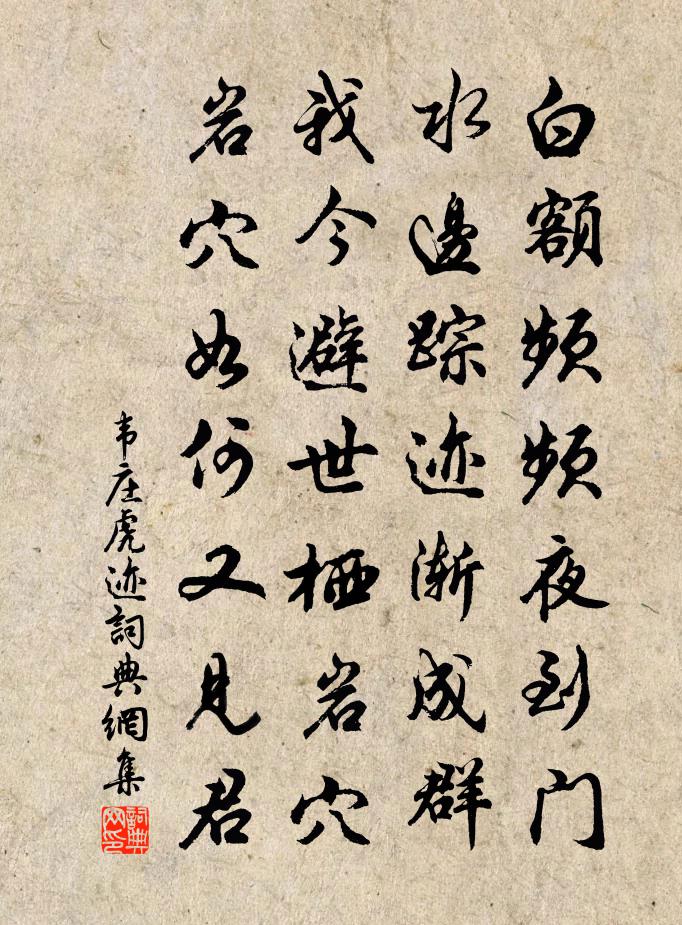 白额频频夜到门
水邊踪迹渐成群
我今避世栖岩穴
岩穴如何又见君
韦庄虎迹詞典網集
詞典网印